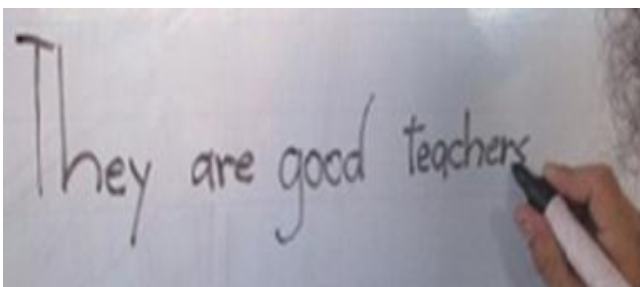 They are good teachers